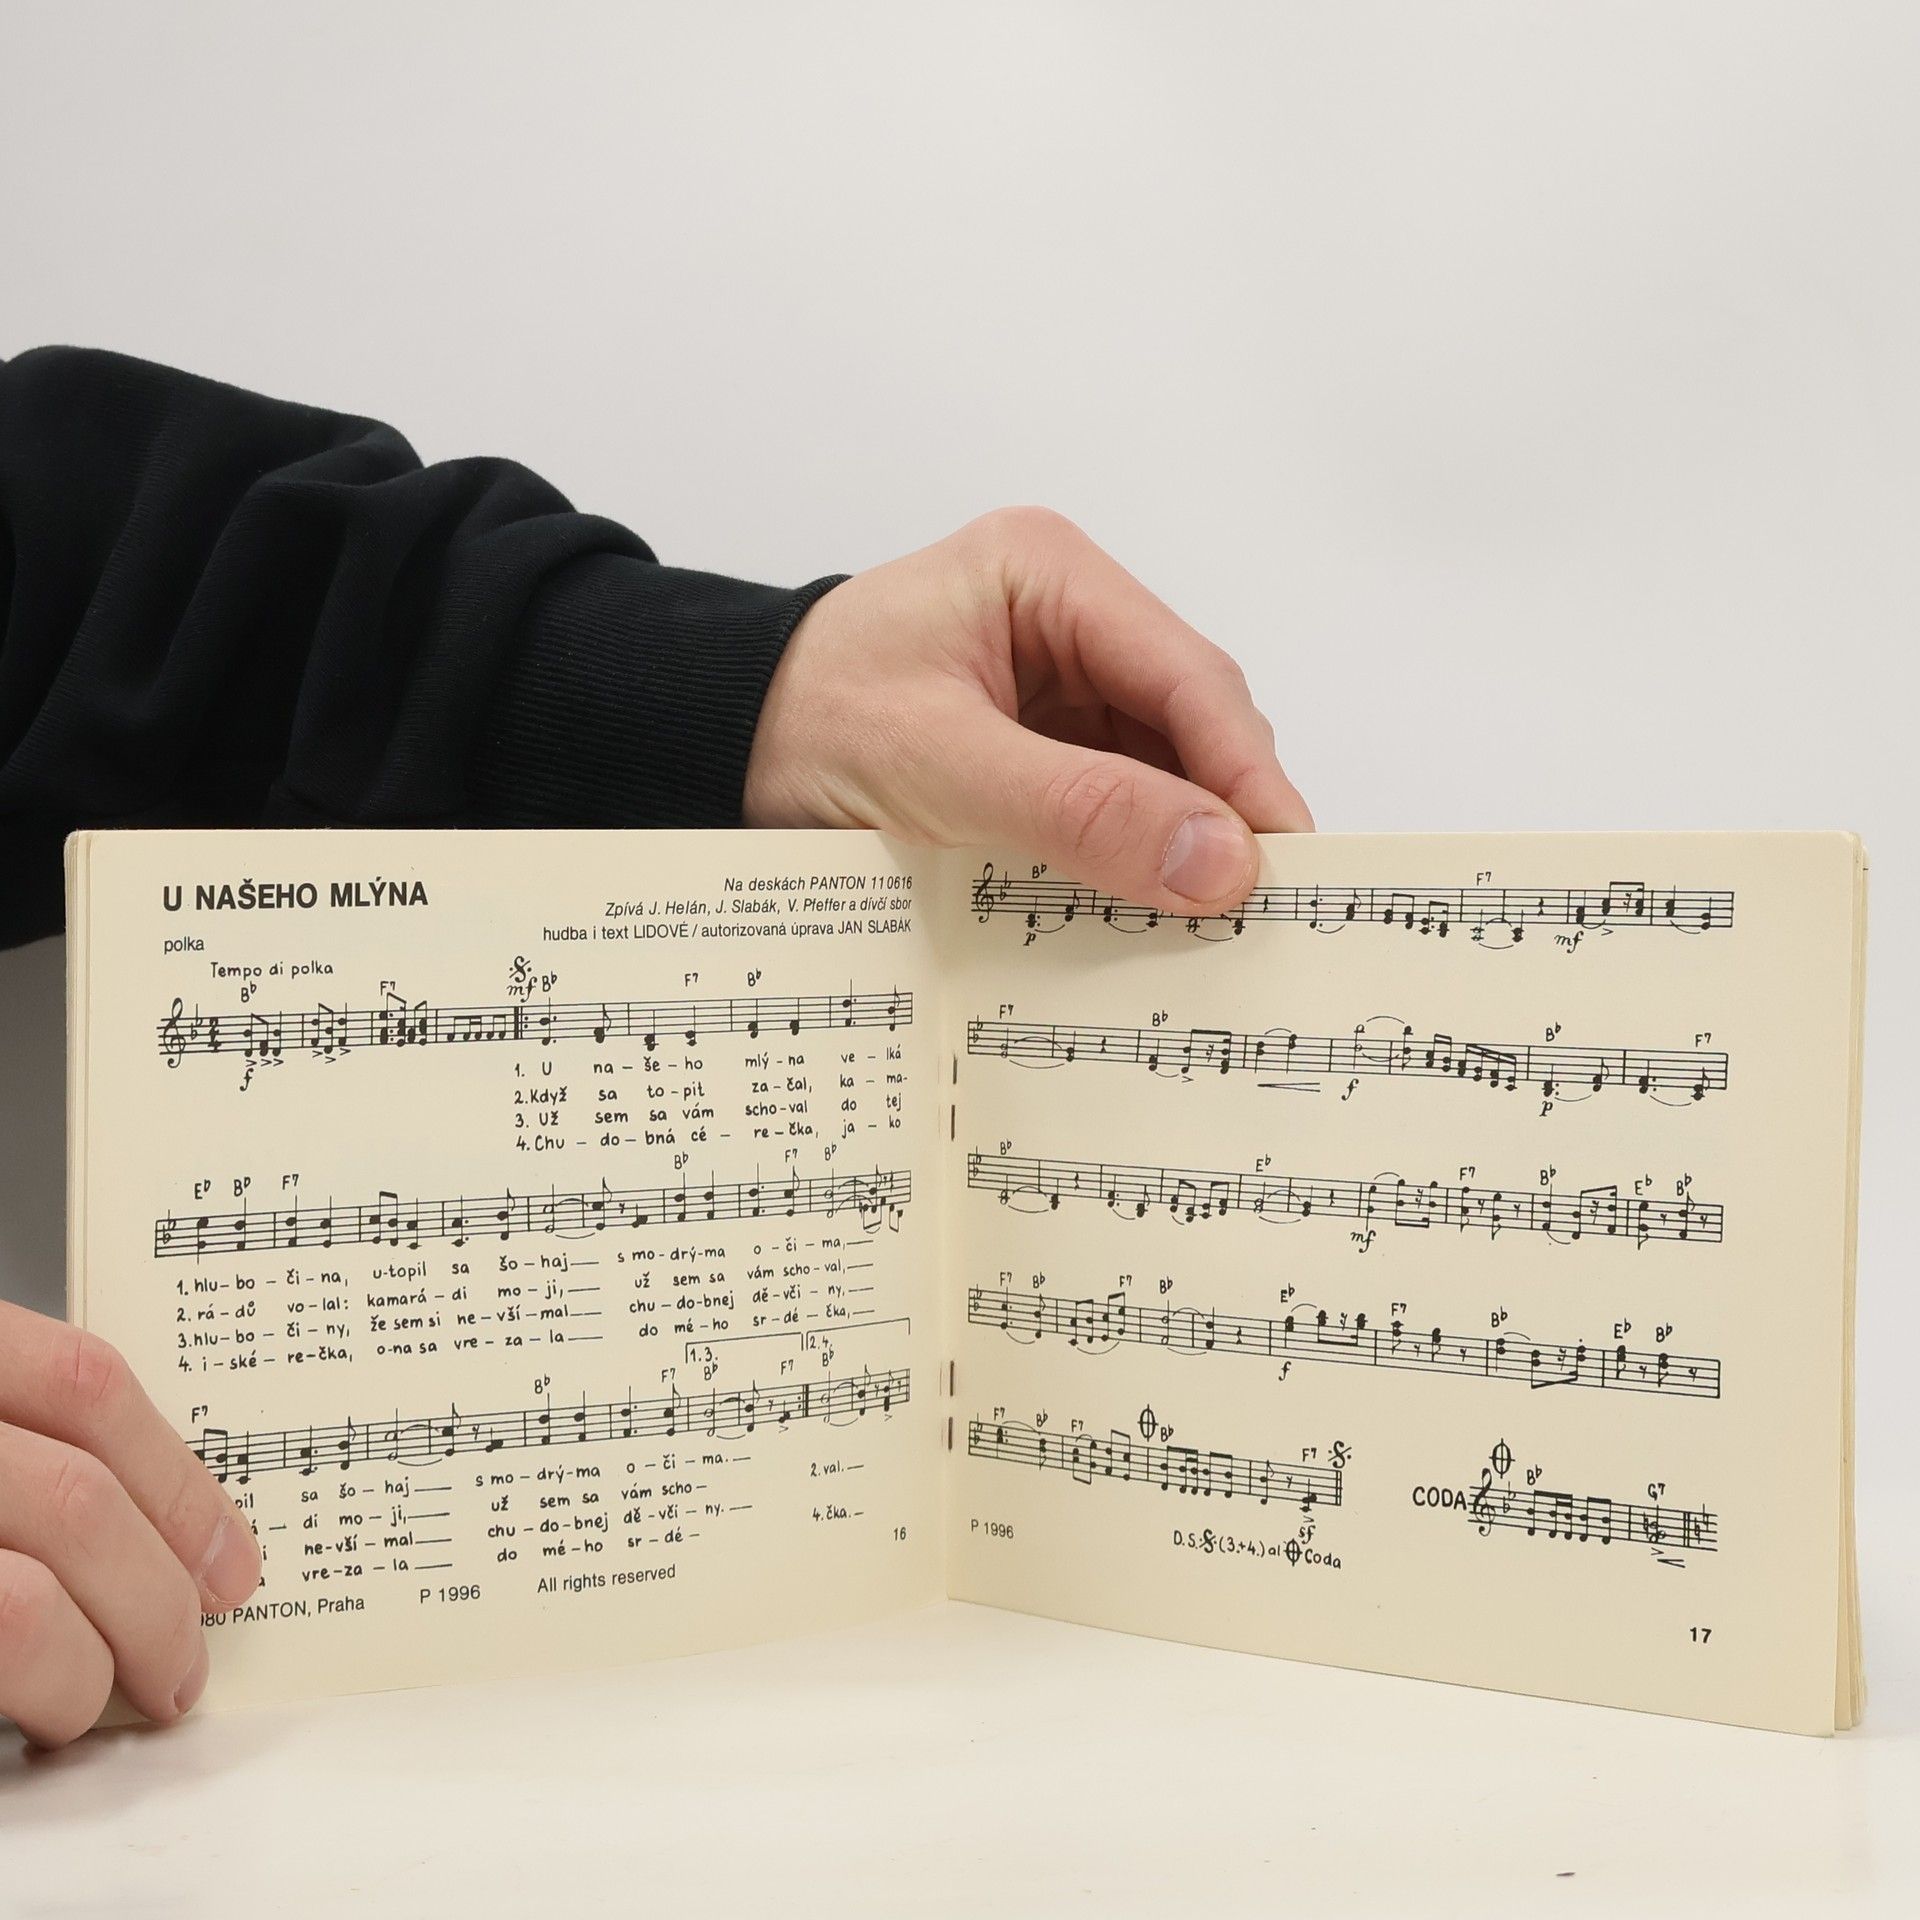 U NAŠEHO MLÝNA
Na deskách PANTON 11 0616
Zpívá J. Helán, J. Slabák, V. Pfeffer a dívčí sbor
hudba i text LIDOVÉ / autorizovaná úprava JAN SLABÁK
polka
Tempo di polka
B♭ F7 mf B♭ F7 B♭
f
1. U na – še – ho mlý – na ve – lká
2. Když sa to – pit za – čal, ka – ma-
3. Už sem sa vám scho – val do tej
4. Chu – do – bná cé – re – čka, ja – ko
E♭ B♭ F7 B♭ F7 B♭
1. hlu – bo – či – na, u-topil sa šo – haj— s mo – drý-ma o – či – ma,—
2. rá – dů vo – lal: kamará – di mo – ji,— už sem sa vám scho – val,—
3. hlu – bo – či – ny, že sem si ne – vší – mal— chu – do-bnej dě – vči – ny,—
4. i – ské – re – čka, o-na sa vre – za – la— do mé – ho sr – dé – čka,—
1.3. 2.4.
F7 B♭ F7 B♭ F7 B♭
pil sa šo – haj— s mo – drý-ma o – či – ma.— 2. val.—
– di mo – ji,— už sem sa vám scho –
ne-vší – mal— chu – do-bnej dě – vči – ny.— 4. čka.—
vre-za – la— do mé – ho sr – dé –
16
980 PANTON, Praha P 1996 All rights reserved
B♭ F7
p mf
F7 B♭ B♭ F7
f p
B♭ E♭ F7 B♭ E♭ B♭
mf
F7 B♭ F7 B♭ E♭ F7 B♭ E♭ B♭
f
F7 B♭ F7 B♭ F7
sf
CODA B♭ G7
P 1996
D.S. (3.+4.) al Coda
17